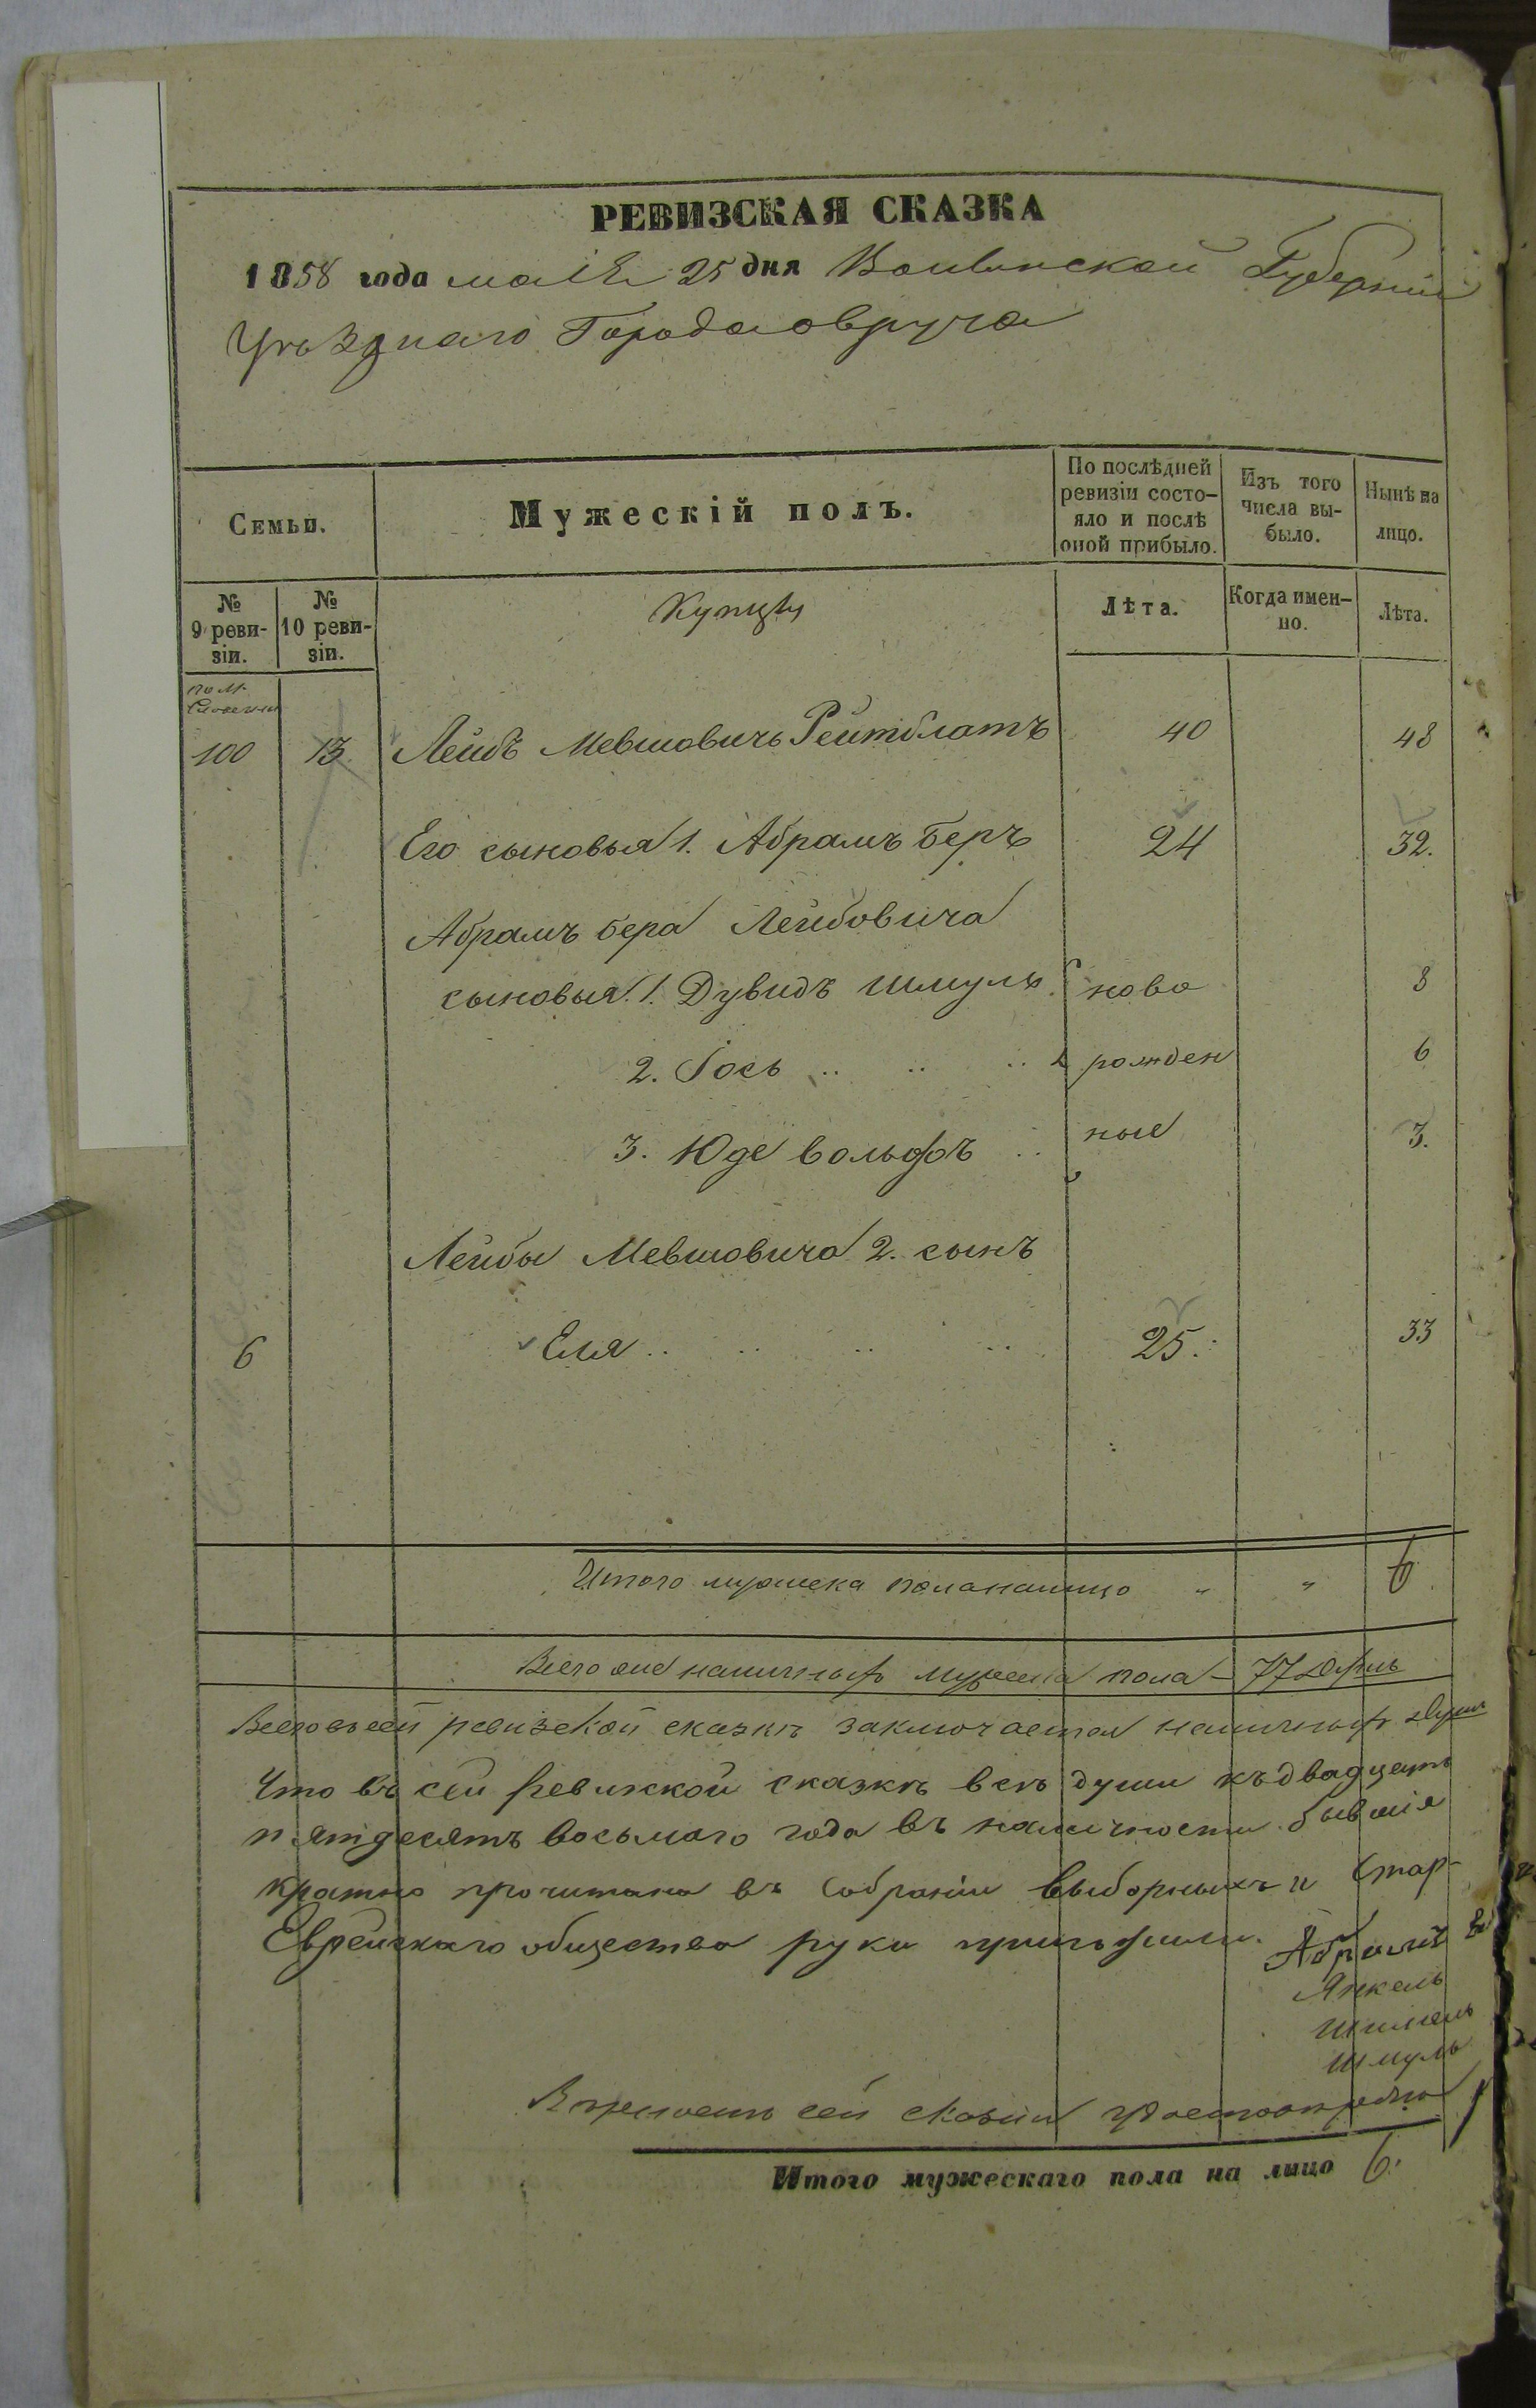 РЕВИЗСКАЯ СКАЗКА
1858 года маія 25 дня Волынской Губерніи
Уѣзднаго Города овруча
Семьи.
Мужескій полъ.
По послѣдней ревизіи состо-яло и послѣ оной прибыло.
Изъ того числа вы-было.
Нынѣ на лицо.
№ 9 реви-зіи.
№ 10 реви-зіи.
Купцы
Лѣта.
Когда имен-но.
Лѣта.
100 13 Лейбъ Мевшовичъ Рейтблатъ 40 48
Его сыновья 1. Абрамъ Беръ 24 32.
Абрамъ бера Лейбовича
сыновья. 1. Дувидъ Шмуль ново 8
2. Іось .. .. .. рожден 6
3. Юде вольфъ .. ные 3.
Лейбы Мевшовича 2. сынъ
6 Еля .. .. .. .. 25. 33
Итого мужеска пола налицо " " 6
Всего же наличныхъ мужеска пола – 77 душъ
Всего въ сей ревизской сказкѣ заключается наличныхъ душъ
Что въ сей ревизкой сказкѣ всѣ души къ двадцать
пятдесятъ восьмаго года въ наличности бывшія
кратно прочитана въ Собраніи выборныхъ и Стар-
Еврейскаго общества руки приложили. Абрамъ
Янкель
Шмуль
сей сказки
Итого мужескаго пола на лицо 6.